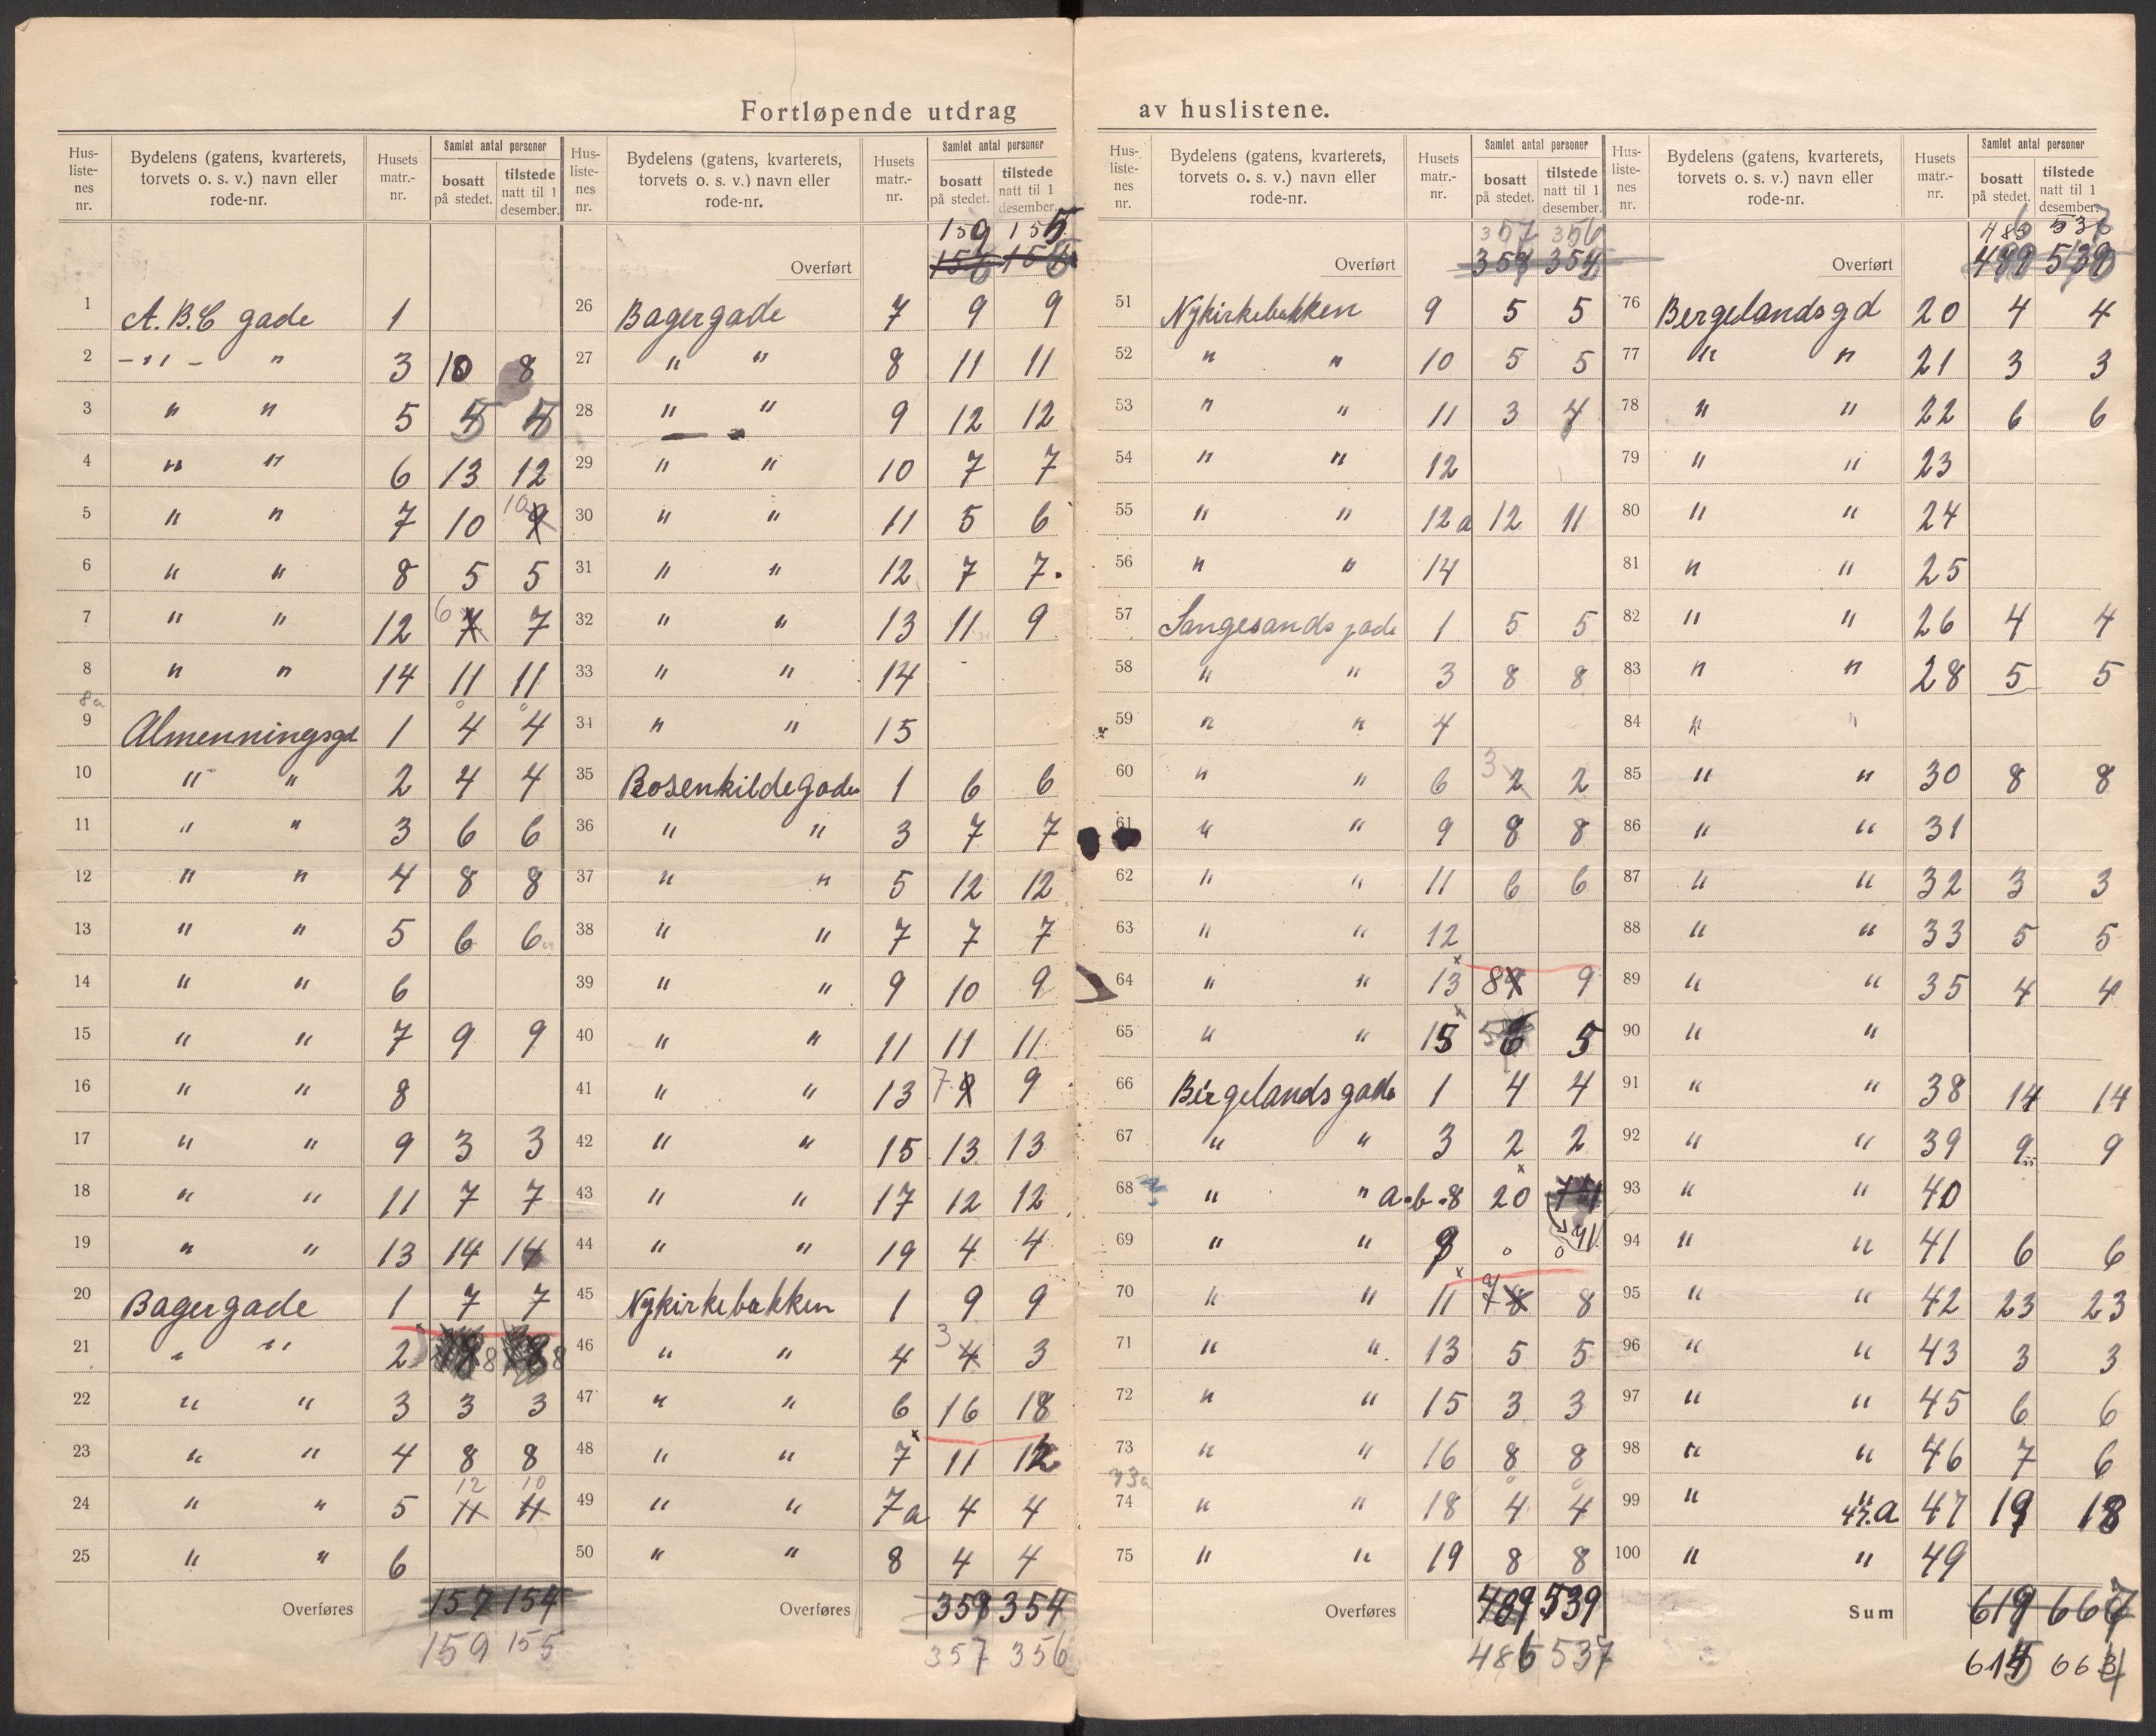 Fortløpende utdrag av huslistene.
Hus-listenes nr. Bydelens (gatens, kvarterets, torvets o. s. v.) navn eller rode-nr. Husets matr.-nr. Samlet antal personer bosatt på stedet. tilstede natt til 1 desember.
1 A.B.C gade 1
2 -"- " 3 10 8
3 " " 5 5 5
4 " " 6 13 12
5 " " 7 10 10
6 " " 8 5 5
7 " " 12 6 7
8 " " 14 11 11
8a 0 0
9 Almenningsgd 1 4 4
10 " " 2 4 4
11 " " 3 6 6
12 " " 4 8 8
13 " " 5 6 6
14 " " 6
15 " " 7 9 9
16 " " 8
17 " " 9 3 3
18 " " 11 7 7
19 " " 13 14 14
20 Bagergade 1 7 7
21 " " 2 8 8
22 " " 3 3 3
23 " " 4 8 8
24 " " 5 12 10
25 " " 6
Overføres 157 154
159 155
Hus-listenes nr. Bydelens (gatens, kvarterets, torvets o. s. v.) navn eller rode-nr. Husets matr.-nr. Samlet antal personer bosatt på stedet. tilstede natt til 1 desember.
159 155
Overført
26 Bagergade 7 9 9
27 " " 8 11 11
28 " " 9 12 12
29 " " 10 7 7
30 " " 11 5 6
31 " " 12 7 7
32 " " 13 11 9
33 " " 14 -
34 " " 15
35 Rosenkildegade 1 6 6
36 " " 3 7 7
37 " " 5 12 12
38 " " 7 7 7
39 " " 9 10 9
40 " " 11 11 11
41 " " 13 7 9
42 " " 15 13 13
43 " " 17 12 12
44 " " 19 4 4
45 Nykirkebakken 1 9 9
46 " " 4 3 3
47 " " 6 16 18
48 " " 7 11 12
49 " " 7a 4 4
50 " " 8 4 4
Overføres 354
357 356
Hus-listenes nr. Bydelens (gatens, kvarterets, torvets o. s. v.) navn eller rode-nr. Husets matr.-nr. Samlet antal personer bosatt på stedet. tilstede natt til 1 desember.
357 356
Overført
51 Nykirkebakken 9 5 5
52 " " 10 5 5
53 " " 11 3 4
54 " " 12
55 " " 12a 12 11
56 " " 14
57 Langesandsgade 1 5 5
58 " " 3 8 8
59 " " 4
60 " " 6 3 2
61 " " 9 8 8
62 " " 11 6 6
63 " " 12
64 " " 13 8 9
65 " " 15 5 5
66 Bergelandsgade 1 4 4
67 " " 3 2 2
68 " " a.b.8 20 91
69 " " 9 0 0
70 " " 11 8
71 " " 13 5 5
72 " " 15 3 3
73 " " 16 8 8
73a 0 0
74 " " 18 4 4
75 " " 19 8 8
Overføres 489 539
486 537
Hus-listenes nr. Bydelens (gatens, kvarterets, torvets o. s. v.) navn eller rode-nr. Husets matr.-nr. Samlet antal personer bosatt på stedet. tilstede natt til 1 desember.
486 537
Overført
76 Bergelandsgd 20 4 4
77 " " 21 3 3
78 " " 22 6 6
79 " " 23
80 " " 24
81 " " 25
82 " " 26 4 4
83 " " 28 5 5
84 " "
85 " " 30 8 8
86 " " 31
87 " " 32 3 3
88 " " 33 5 5
89 " " 35 4 4
90 " "
91 " " 38 14 14
92 " " 39 9 9
93 " " 40
94 " " 41 6 6
95 " " 42 23 23
96 " " 43 3 3
97 " " 45 6 6
98 " " 46 7 6
99 " " 47.a 47 19 18
100 " " 49
Sum 619 667
615 664